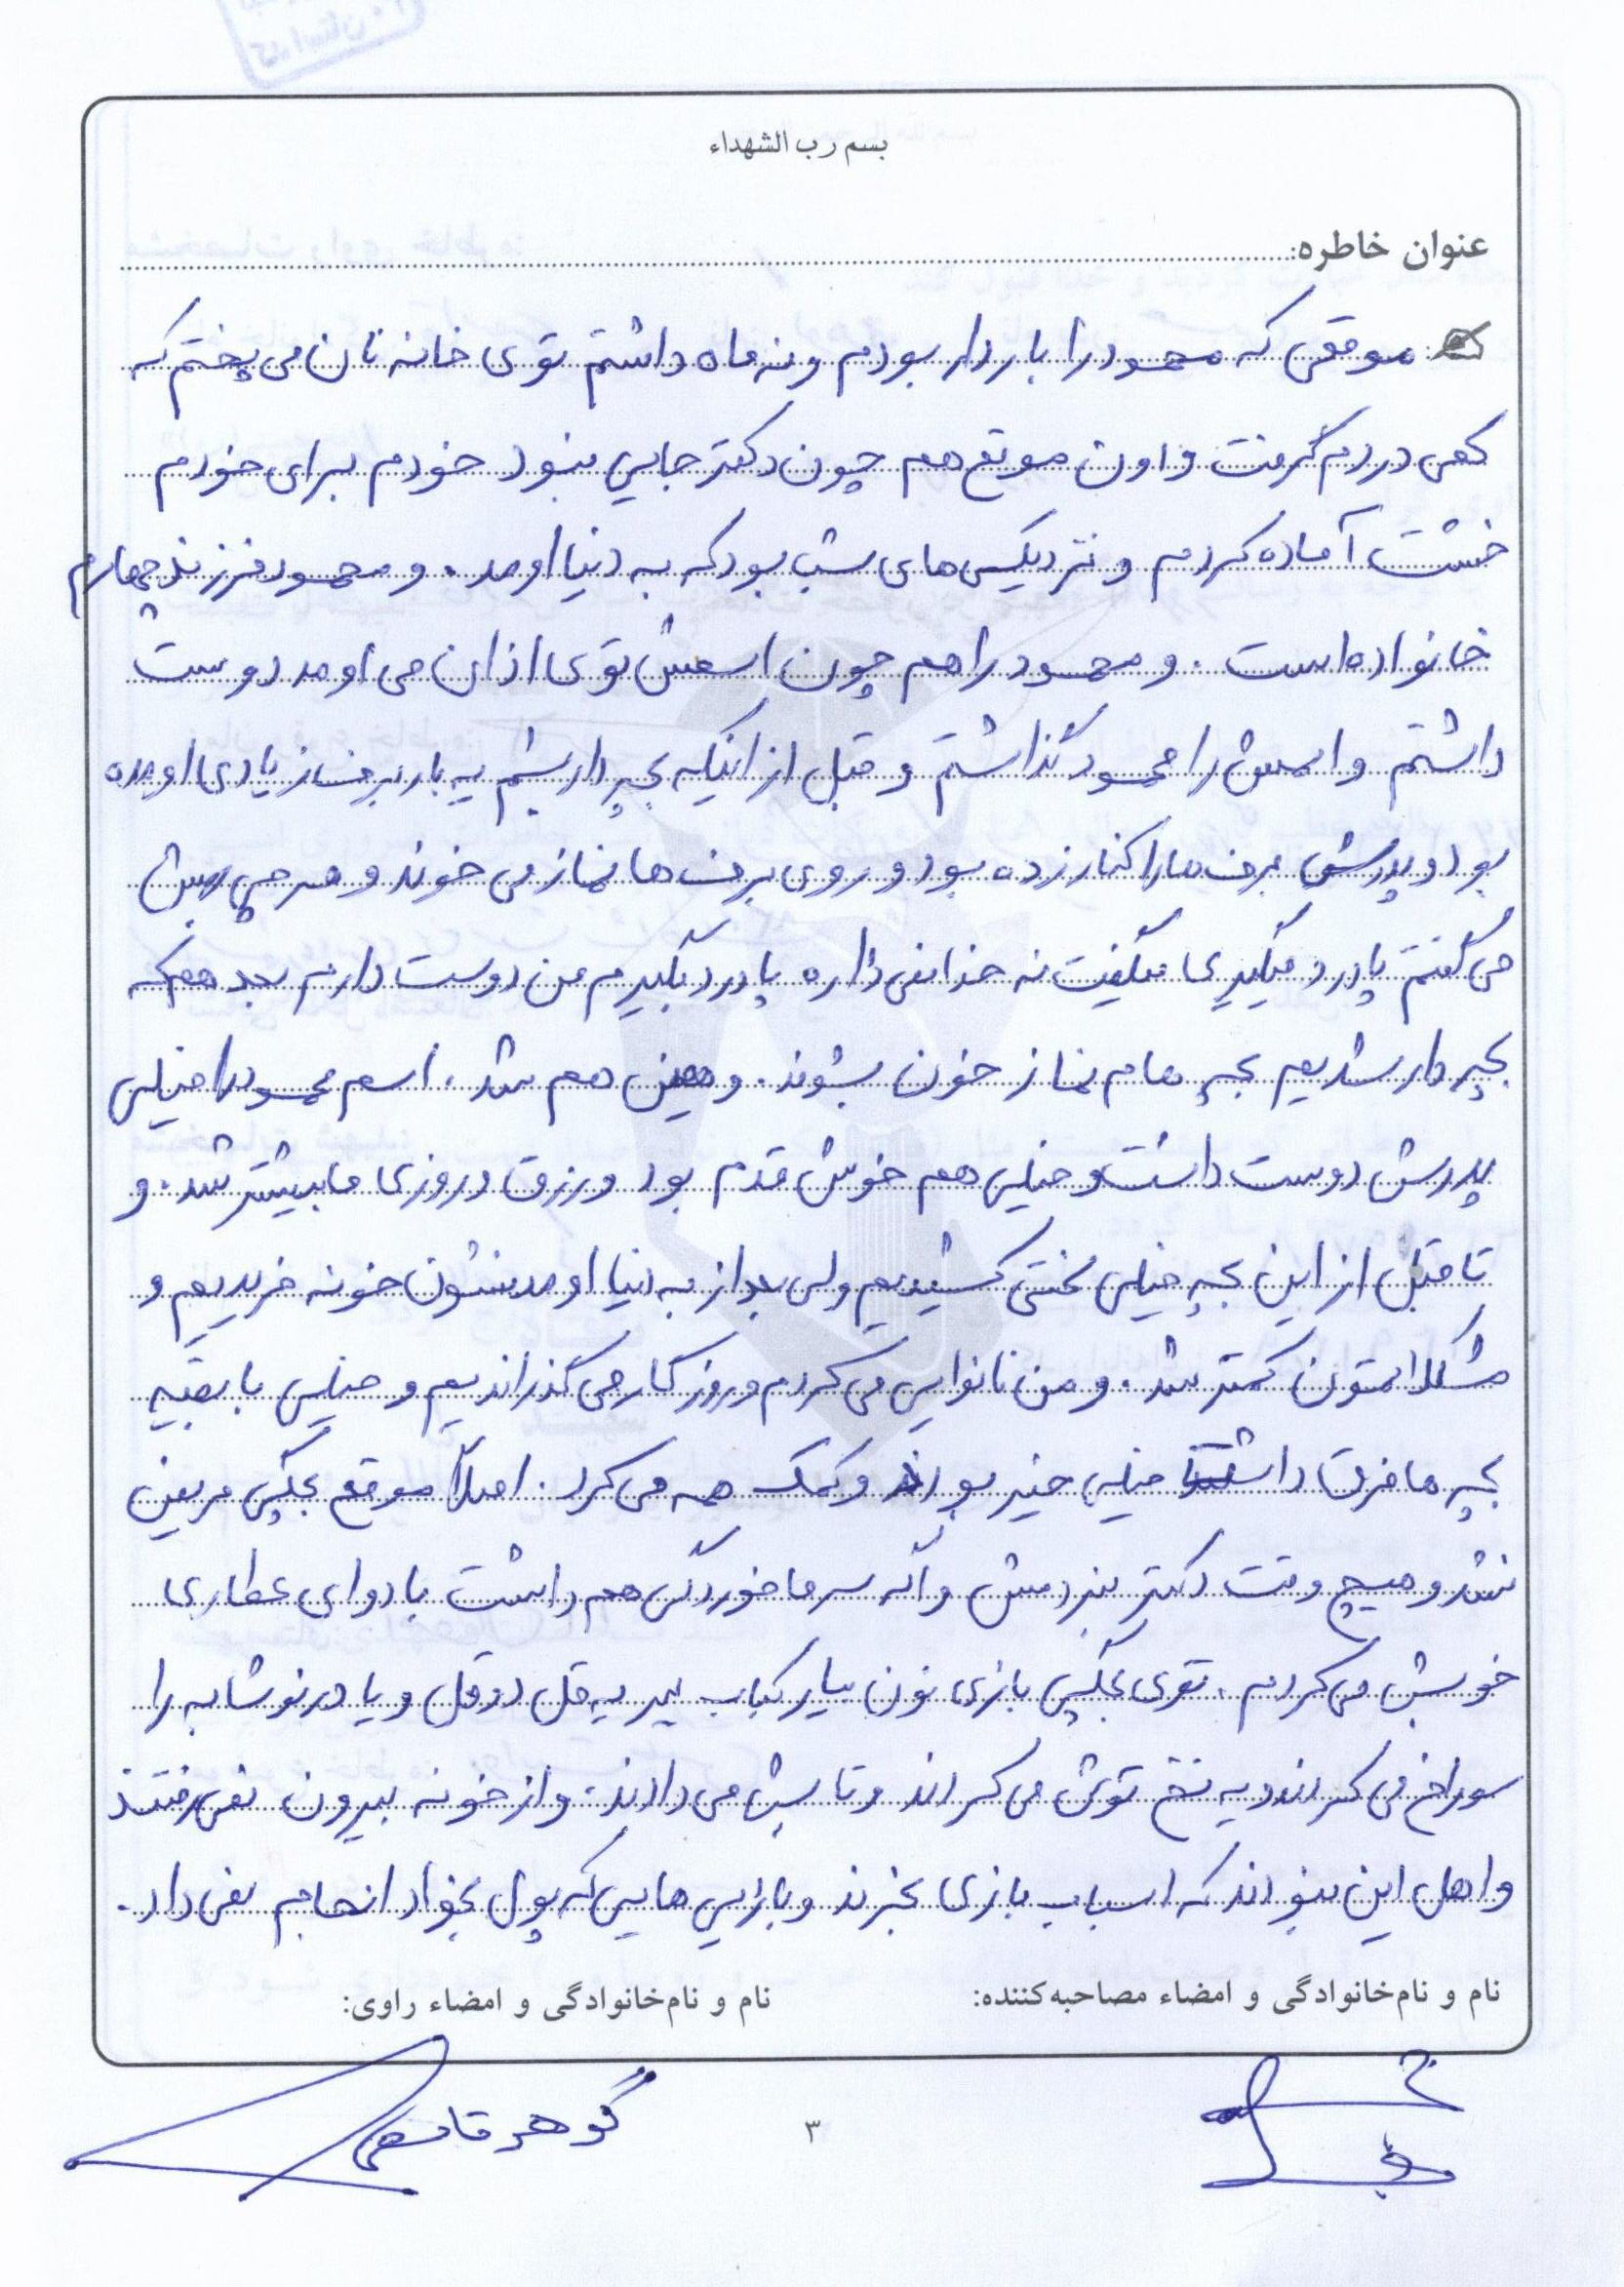 بسم رب الشهداء
عنوان خاطره:
موقعی که محمود را باردار بودم و نه ماه داشتم توی خانه نان می پختم که
کمی دردم گرفت و اون موقع هم چون دکتر جایی نبود خودم برای خودم
خشت آماده کردم و نزدیکی های شب بود که به دنیا اومد . و محمود فرزند چهارم
خانواده است . و محمود را هم چون اسمش توی اذان می اومد دوست
داشتم و اسمش را محمود گذاشتم و قبل از اینکه بچه دار بشم یه بار برف زیادی اومده
بود و پدرش برف ها را کنار زده بود و روی برف ها نماز می خوند و هر چی بهش
می گفتم پادرد میگیری میگفت نه خدا نمی ذاره پادرد بگیرم من دوست دارم بعد هم که
بچه دار شدیم بچه هام نماز خون بشوند . و همین هم شد . اسم محمود را خیلی
پدرش دوست داشت و خیلی هم خوش قدم بود و رزق و روزی ما بیشتر شد . و
تا قبل از این بچه خیلی سختی کشیدیم ولی بعد از به دنیا اومدنشون خونه خریدیم و
مشکلاتمون کمتر شد . و من نانوایی می کردم و روزگار می گذراندیم و خیلی با بقیه
بچه ها فرق داشت خیلی خیر بود و کمک همه می کرد . اصلاً موقع بچگی مریض
نشد و هیچ وقت دکتر نبردمش و اگه سرما خوردگی هم داشت با دوای عطاری
خوبش می کردم . توی بچگی بازی نون بیار کباب ببر یه قل دو قل و یا در نوشابه را
سوراخ می کردند و یه نخ توش می کردند و تابش می دادند . و از خونه بیرون نمی رفتند
و اهل این نبودند که اسباب بازی بخرند و بازیی هایی که پول بخواد انجام نمی داد .
نام و نام‌خانوادگی و امضاء مصاحبه‌کننده: نام و نام‌خانوادگی و امضاء راوی:
گوهر
۳